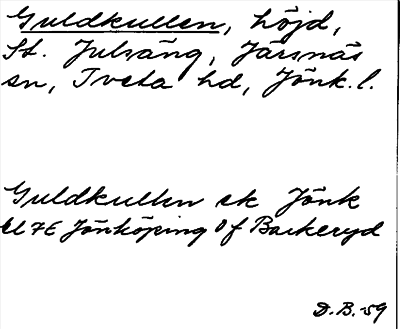 Guldkullen, höjd,
St. Julsäng, Järsnäs
sn, Tveta hd, Jönk. l.
Guldkullen ek Jönk
bl 7E Jönköping Of Barkeryd
D.B.-59